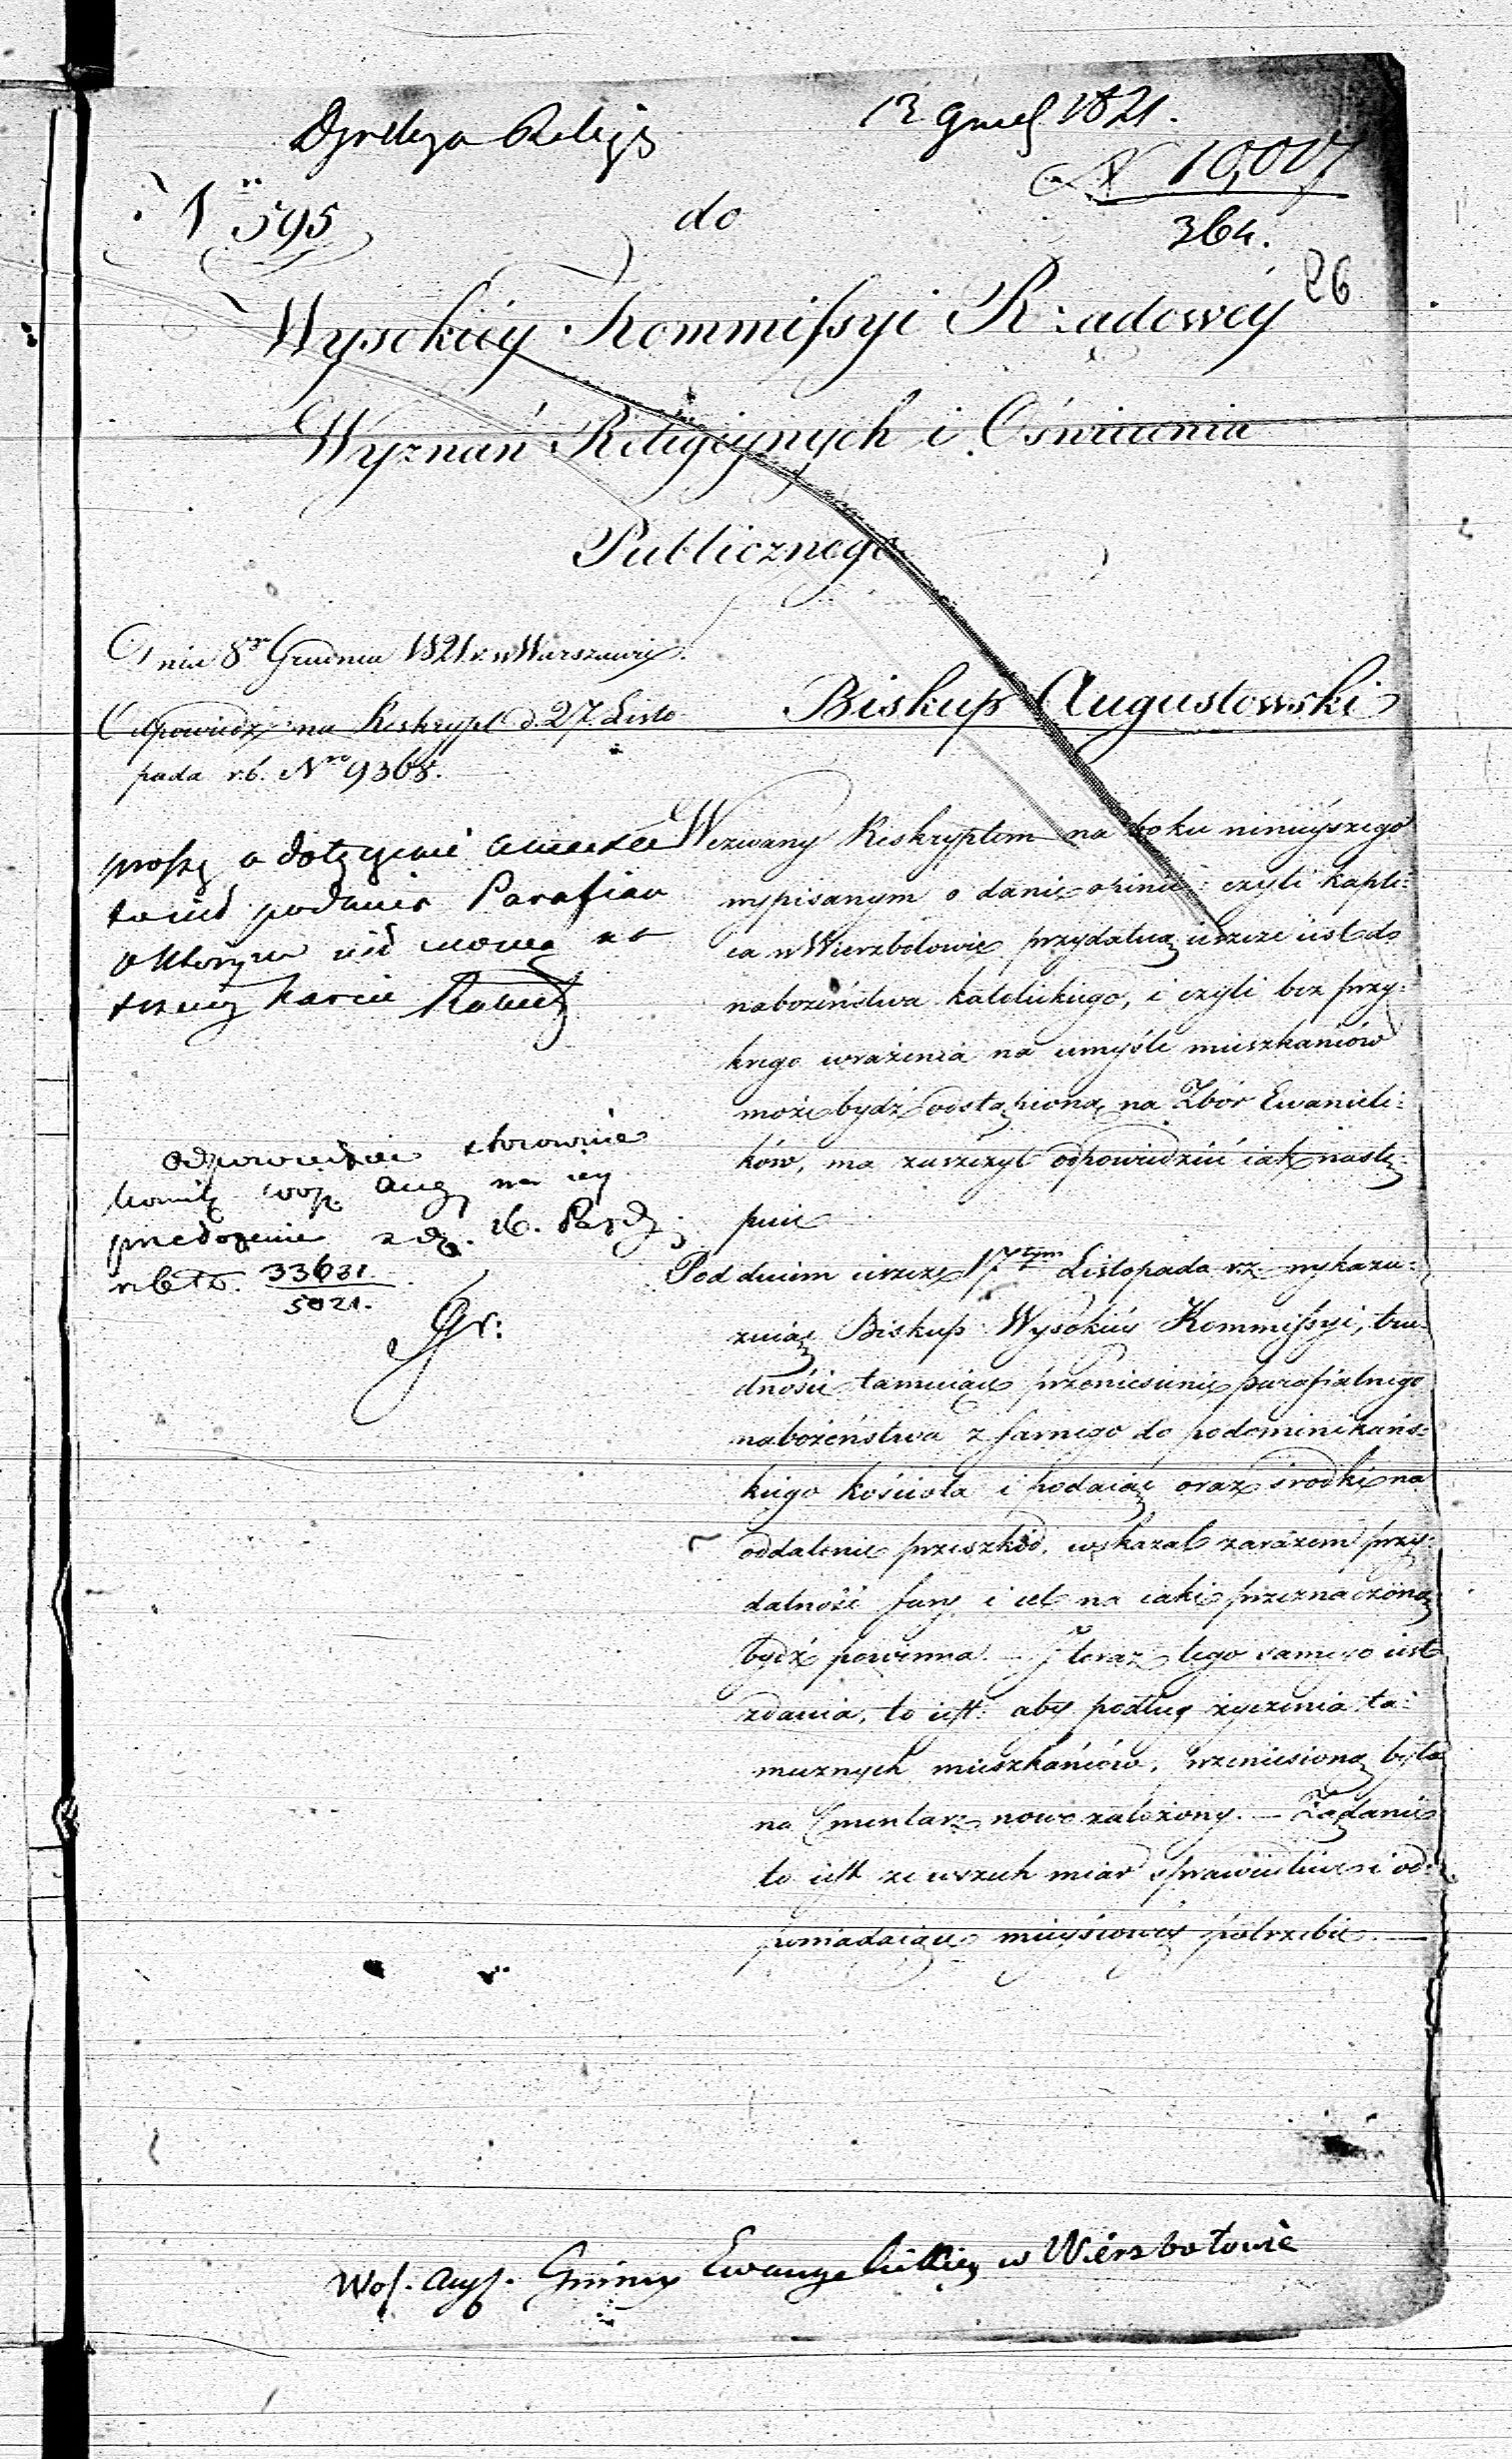 Dyrekcya Religijn
13 Grud 1821.
N 10,007
364.
N 595
do
26
Wysokiéy Kommissyi Rządowéy
Wyznań Religijnych i Oświecenia
Publicznego
Dnia 8go Grudnia 1821 r. w Warszawie.
Biskup Augustowski
Odpowiedź na Reskrypt d. 27 Listo
pada r.b. Nro 9368.
proszę o dołączenie
podanie Parafian
o którym iest mowa
Odpowiedzieć stosownie
Kommiſ. Woj. Aug. na iey
przedłożenie z d. 26. Paźdz.
r. b. No. 33631
5021.
Gr:
Wezwany Reskryptem na boku ninieyszego
wypisanym o danie opinii: czyli kapli:
ca w Wierzbołowie przydatną ieszcze iest do
nabożeństwa katolickiego, i czyli bez przy:
krego wrażenia na umyśle mieszkańców
może bydź odstąpioną na Zbór Ewanieli:
ków, ma zaszczyt odpowiedzieć iak nastę:
puie
Pod dniem ieszcze 17tym Listopada r.z. wykazu:
ziąc Biskup Wysokiéy Kommissyi, tru:
dności tamuiące przeniesienie parafialnego
nabożeństwa z farnego do podominikańs:
kiego kościoła i podaiąc oraz środki na
oddalenie przeszkód, wskazał zarazem przy:
datność fary i cel na iaki przeznaczoną
bydź powinna. — I teraz tego samego iest
zdania, to iest: aby podług życzenia ta:
mecznych mieszkańców, przeniesioną była
na Cmentarz nowo założony. — Żądanie
to iest ze wszech miar sprawiedliwe i od:
powiadaiące mieyscowéy potrzebie. —
Woj. Aug. Gminy Ewangelickiey w Wierzbołowie